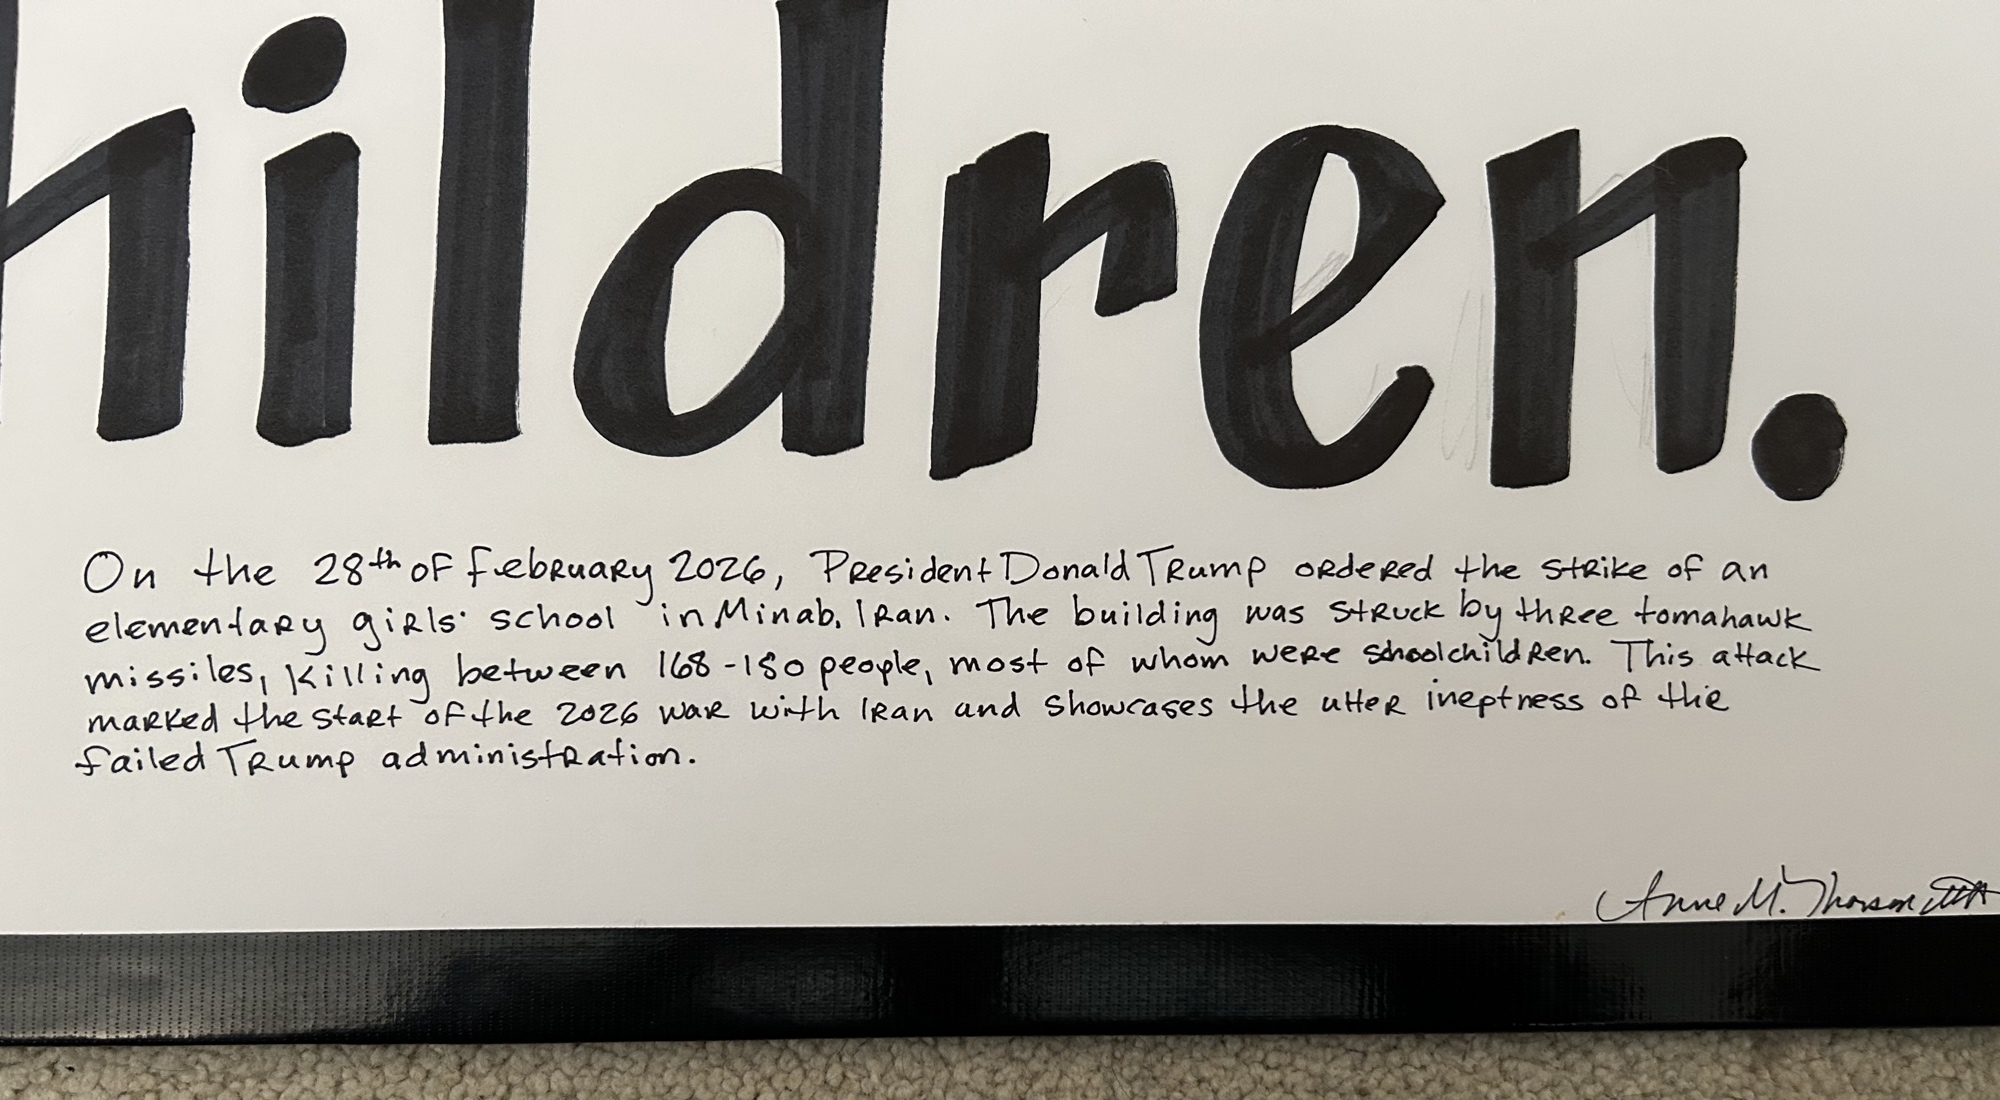 hildren.
On the 28th of february 2026, President Donald Trump ordered the strike of an
elementary girls' school in Minab, Iran. The building was struck by three tomahawk
missiles, killing between 168-180 people, most of whom were schoolchildren. This attack
marked the start of the 2026 war with Iran and showcases the utter ineptness of the
failed Trump administration.
Anne M. Thorson